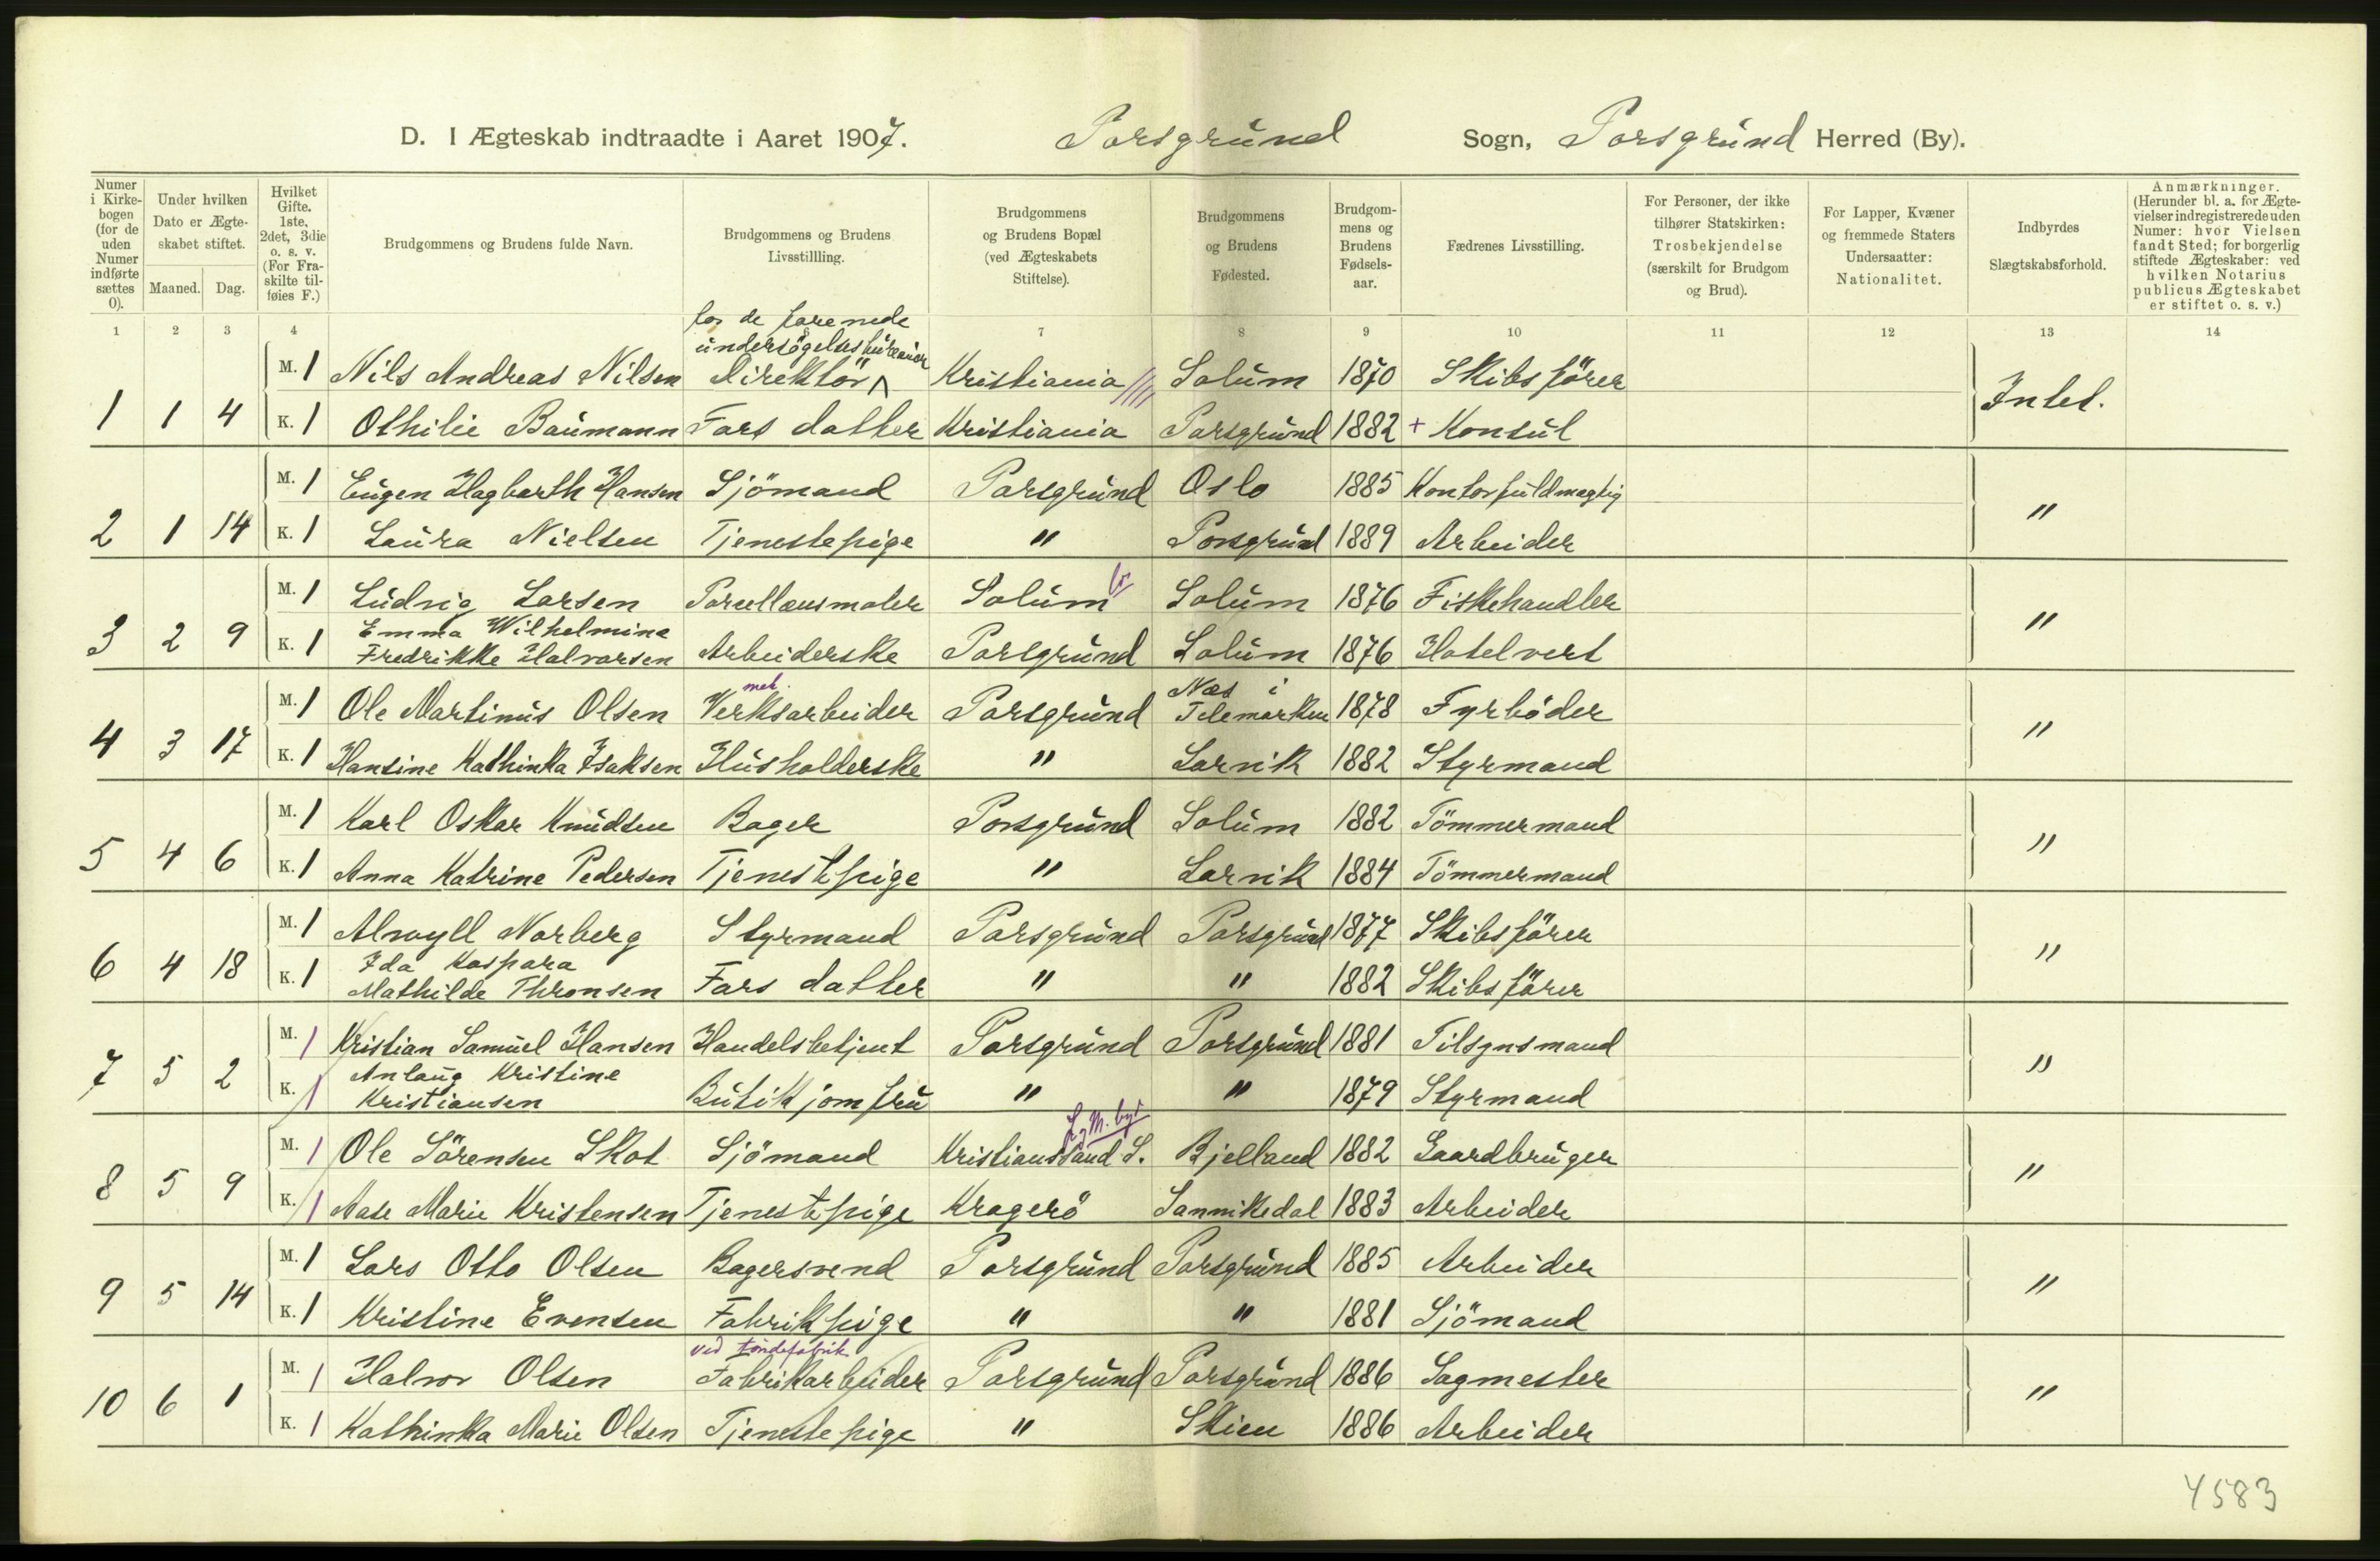 D. I Ægteskab indtraadte i Aaret 1907. Porsgrund Sogn, Porsgrund Herred (By).
Numer i Kirkebogen (for de uden Numer indførte sættes 0). | Under hvilken Dato er Ægteskabet stiftet. Maaned. Dag. | Hvilket Gifte. 1ste, 2det, 3die o. s. v. (For Fraskilte tilføies F.) | Brudgommens og Brudens fulde Navn. | Brudgommens og Brudens Livsstillling. | Brudgommens og Brudens Bopæl (ved Ægteskabets Stiftelse). | Brudgommens og Brudens Fødested. | Brudgommens og Brudens Fødselsaar. | Fædrenes Livsstilling. | For Personer, der ikke tilhører Statskirken: Trosbekjendelse (særskilt for Brudgom og Brud). | For Lapper, Kvæner og fremmede Staters Undersaatter: Nationalitet. | Indbyrdes Slægtskabsforhold. | Anmærkninger. (Herunder bl. a. for Ægtevielser indregistrerede uden Numer: hvor Vielsen fandt Sted; for borgerlig stiftede Ægteskaber: ved hvilken Notarius publicus Ægteskabet er stiftet o. s. v.)
1 2 3 4 7 8 9 10 11 12 13 14
for de forenede
undersögelsesbureauer
M. 1 Nils Andreas Nilsen Direktör Kristiania Solum 1870 Skibsförer
1 1 4 K. 1 Othilie Baumann Fars datter Kristiania Porsgrund 1882 + Konsul Intet.
M. 1 Eugen Hagbarth Hansen Sjömand Porsgrund Oslo 1885 Kontorfuldmægtig
2 1 14 K. 1 Laura Nielsen Tjenestepige " Porsgrund 1889 Arbeider "
M. 1 Ludvig Larsen Porcellænsmaler Solum Solum 1876 Fiskehandler
3 2 9 K. 1 Emma Wilhelmine Fredrikke Halvorsen Arbeiderske Porsgrund Solum 1876 Hotelvert "
M. 1 Ole Martinus Olsen mek. Verksarbeider Porsgrund Næs i Telemarken 1878 Fyrböder
4 3 17 K. 1 Hansine Kathinka Isaksen Husholderske " Larvik 1882 Styrmand "
M. 1 Karl Oskar Knudsen Bager Porsgrund Solum 1882 Tömmermand
5 4 6 K. 1 Anna Katrine Pedersen Tjenestepige " Larvik 1884 Tömmermand "
M. 1 Alwyll Norberg Styrmand Porsgrund Porsgrund 1877 Skibsförer
6 4 18 K. 1 Ida Kaspara Mathilde Thronsen Fars datter " " 1882 Skibsförer "
M. 1 Kristian Samuel Hansen Handelsbetjent Porsgrund Porsgrund 1881 Tilsynsmand
7 5 2 K. 1 Anlaug Kristine Kristiansen Butikjomfru " " 1879 Styrmand "
M. 1 Ole Sörensen Skot Sjömand Kristianssand S. Bjelland 1882 Gaardbruger
8 5 9 K. 1 Aase Marie Kristensen Tjenestepige Kragerö Sannikedal 1883 Arbeider "
M. 1 Lars Otto Olsen Bagersvend Porsgrund Porsgrund 1885 Arbeider
9 5 14 K. 1 Kristine Evensen Fabrikpige " " 1881 Sjömand "
ved tøndefabrik
M. 1 Halvor Olsen Fabrikarbeider Porsgrund Porsgrund 1886 Sagmester
10 6 1 K. 1 Kathinka Marie Olsen Tjenestepige " Skien 1886 Arbeider "
4583